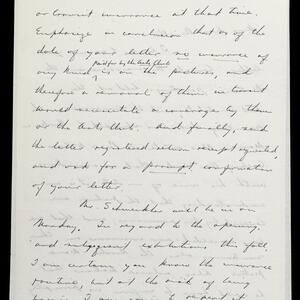 or transit insurance at that time.
Emphasize in conclusion that as of the
date of your letter no insurance of
any kind, paid for by the Arts Club, is on the pictures, and
therefore a removal of them in transit
would necessitate a coverage by them
or the Arts Club. And finally, send
the letter registered return receipt requested,
and ask for a prompt confirmation
of your letter.
Mr. Schweikher will be in on
Monday. In regard to the opening,
and subsequent exhibitions this fall,
I am certain you know the insurance
routine, but at the risk of being
I